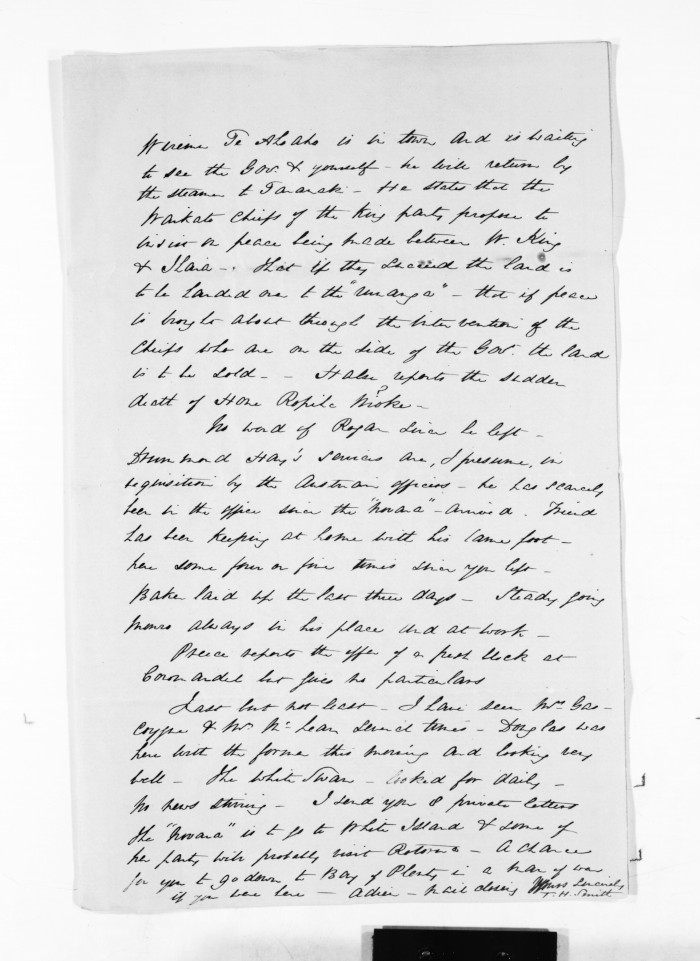 Wireme Te Ahoaho is in town and is waiting
to see the Gov. & yourself - he will return by
the steamer to Taranaki - He states that the
Waikato Chiefs of the King party propose to
insist on peace being made between W. King
& Ihaia -. that if they succeed the land is
to be handed over to the "runanga" - that if peace
is brought about through the intervention of the
Chiefs who are on the side of the Gov. the land
is to be sold. - Halse reports the sudden
death of Hone Ropiha ?
No word of Rogan since he left -
Drummond Hay's services are, I presume, in
requisition by the Austrian officers - he has scarcely
been in the office since the "Novara" - arrived. Friend
has been keeping at home with his lame foot -
here some four or five times since you left -
Baker laid up the last three days - Steady going
Monro always in his place and at work -
Preece reports the offer of a fresh block at
Coromandel but gives no particulars
Last but not least - I have seen Mrs Gas-
coyne & Mrs McLean several times - Douglas was
here with the former this morning and looking very
well - The White Swan - looked for daily -
No news stirring - I send you 8 private letters
The "Novara" is to go to White Island & some of
her party will probably visit Rotorua - A chance
for you to go down to Bay of Plenty in a man of war
if you were here - Adieu - mail closing Yours sincerely
T. H. Smith